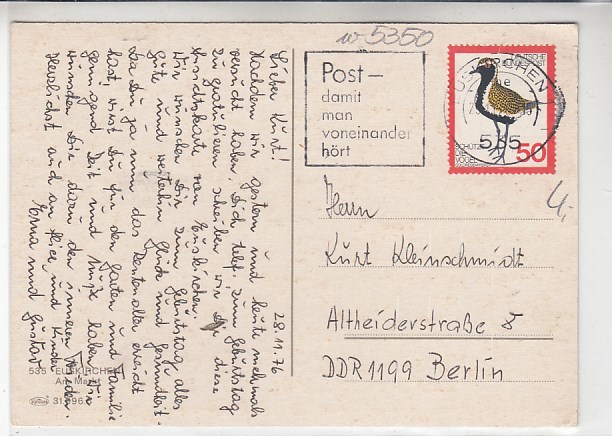 w-5350
28.11.76
Lieber Kurt!
Nachdem wir gestern und heute mehrmals
versucht haben, Dich telef. zum Geburtstag
zu gratulieren, schreiben wir Dir diese
Ansichtskarte von Euskirchen.
Wir wünschen Dir zum Geburtstag alles
Gute und weiterhin Glück und Gesundheit.
Da Du ja nun das Rentenalter erreicht
hast, wirst Du für den Garten und Familie
genügend Zeit und Muße haben. Wir
wünschen Dir dazu den inneren Frieden.
Herzlichst auch an Alice und Kinder
Erna und Gustav
535 EUSKIRCHEN
Am Markt
31 096
Post-
damit
man
voneinander
hört
DEUTSCHE
BUNDESPOST
535
SCHÜTZT
DIE
VÖGEL
50
4,-
Herrn
Kurt Kleinschmidt
Altheiderstraße 5
DDR 1199 Berlin